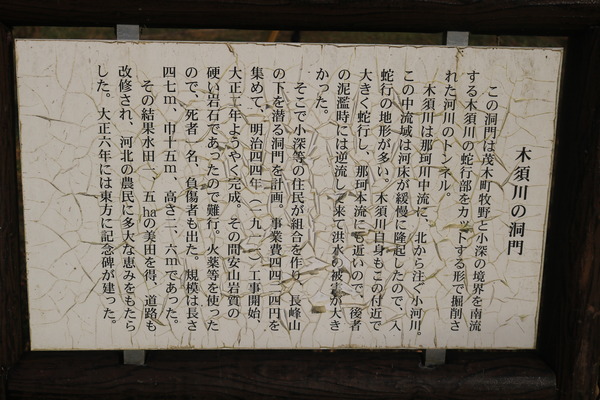 木須川の洞門
この洞門は茂木町牧野と小深の境界を南流
する木須川の蛇行部をカットする形で掘削さ
れた河川のトンネル。
木須川は那珂川中流に、北から注ぐ小河川。
この中流域は河床が緩慢に隆起したので、入
蛇行の地形が多い。木須川自身もこの付近で
大きく蛇行し、那珂本流にも近いので、後者
の氾濫時には逆流して来て洪水の被害が大き
かった。
そこで小深等の住民が組合を作り、長峰山
の下を潜る洞門を計画。事業費四四一四円を
集めて、明治四四年(一九一一)工事開始、
大正二年ようやく完成。その間安山岩質の
硬い岩石であったので難行。火薬等を使った
ので、死者一名、負傷者も出た。規模は長さ
四七m、巾十五m、高さ二、六mであった。
その結果水田一、五haの美田を得、道路も
改修され、河北の農民に多大な恵みをもたら
した。大正六年には東方に記念碑が建った。